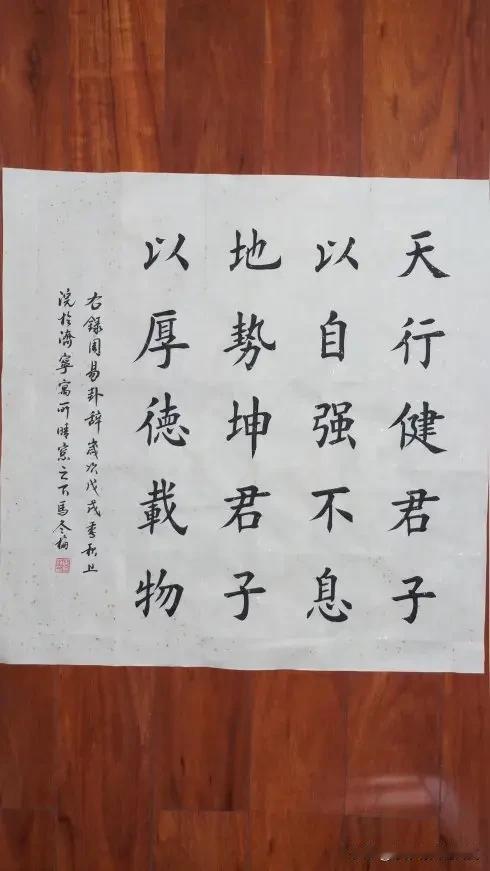 天行健君子
以自强不息
地势坤君子
以厚德載物
右録周易卦辞歲次戊戌季秋上
浣於濟寧寓所晴窓之下馬冬梅